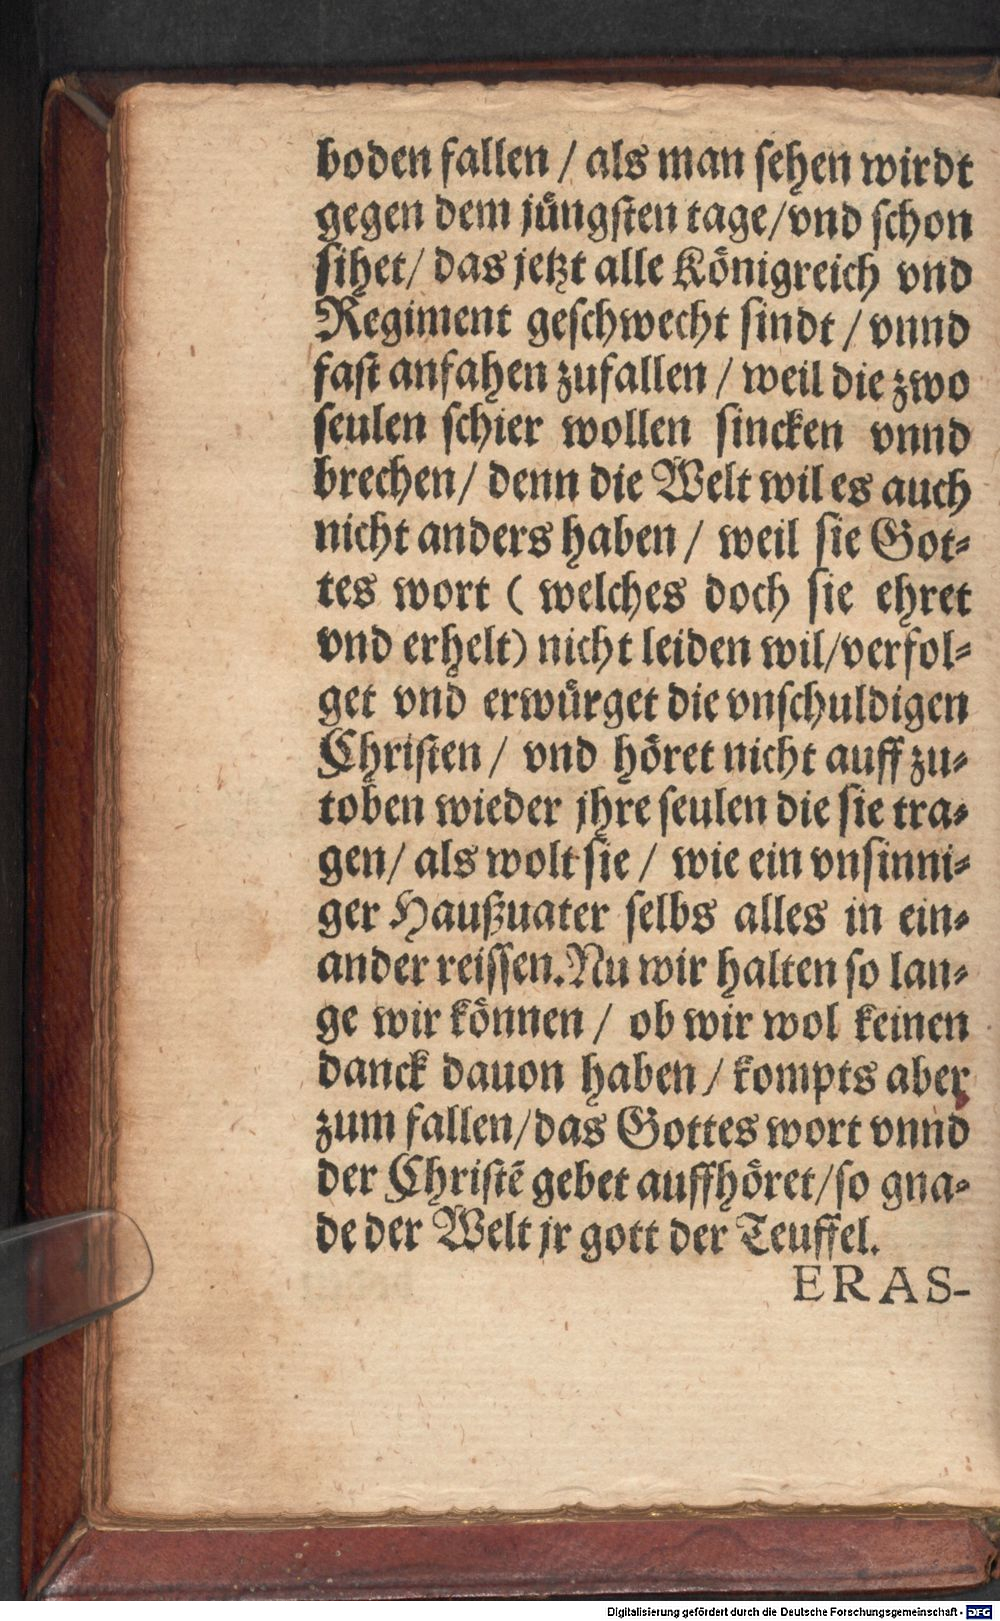 boden fallen / als man sehen wirdt
gegen dem jüngsten tage/vnd schon
sihet/ das jetzt alle Königreich vnd
Regiment geschwecht sindt / vnnd
fast anfahen zufallen / weil die zwo
seulen schier wollen sincken vnnd
brechen/ denn die Welt wil es auch
nicht anders haben / weil sie Got-
tes wort ( welches doch sie ehret
vnd erhelt) nicht leiden wil/verfol-
get vnd erwürget die vnschuldigen
Christen / vnd höret nicht auff zu-
toben wieder jhre seulen die sie tra-
gen/ als wolt sie / wie ein vnsinni-
ger Haußuater selbs alles in ein-
ander reissen.Nu wir halten so lan-
ge wir können / ob wir wol keinen
danck dauon haben / kompts aber
zum fallen/das Gottes wort vnnd
der Christē gebet auffhöret/so gna-
de der Welt jr gott der Teuffel.
ERAS-
Digitalisierung gefördert durch die Deutsche Forschungsgemeinschaft - DFG